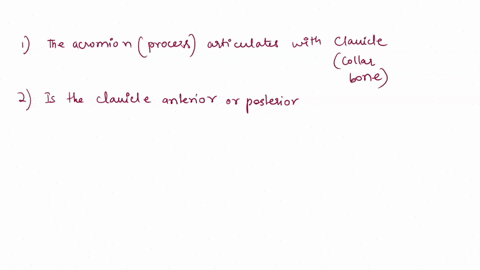 1) The acromion (process) articulates with Clavicle
(Collar
bone)
2) Is the clavicle anterior or posterior